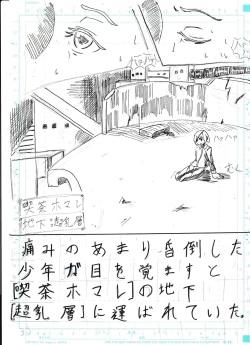 ハァハァ
[喫茶ホマレ]
[地下超乳層]
痛みのあまり昏倒した
少年が目を覚ますと
[喫茶ホマレ]の地下
[超乳層]に運ばれていた。